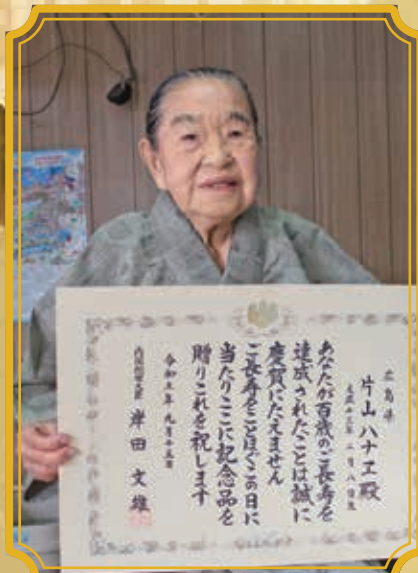 広島県
片山 ハナヱ殿
あなたが百歳のご長寿を
達成されたことは誠に
慶賀にたえません
ご長寿をことほぐこの日に
当たりここに記念品を
贈りこれを祝します
令和五年 九月十五日
内閣総理大臣 岸田 文雄